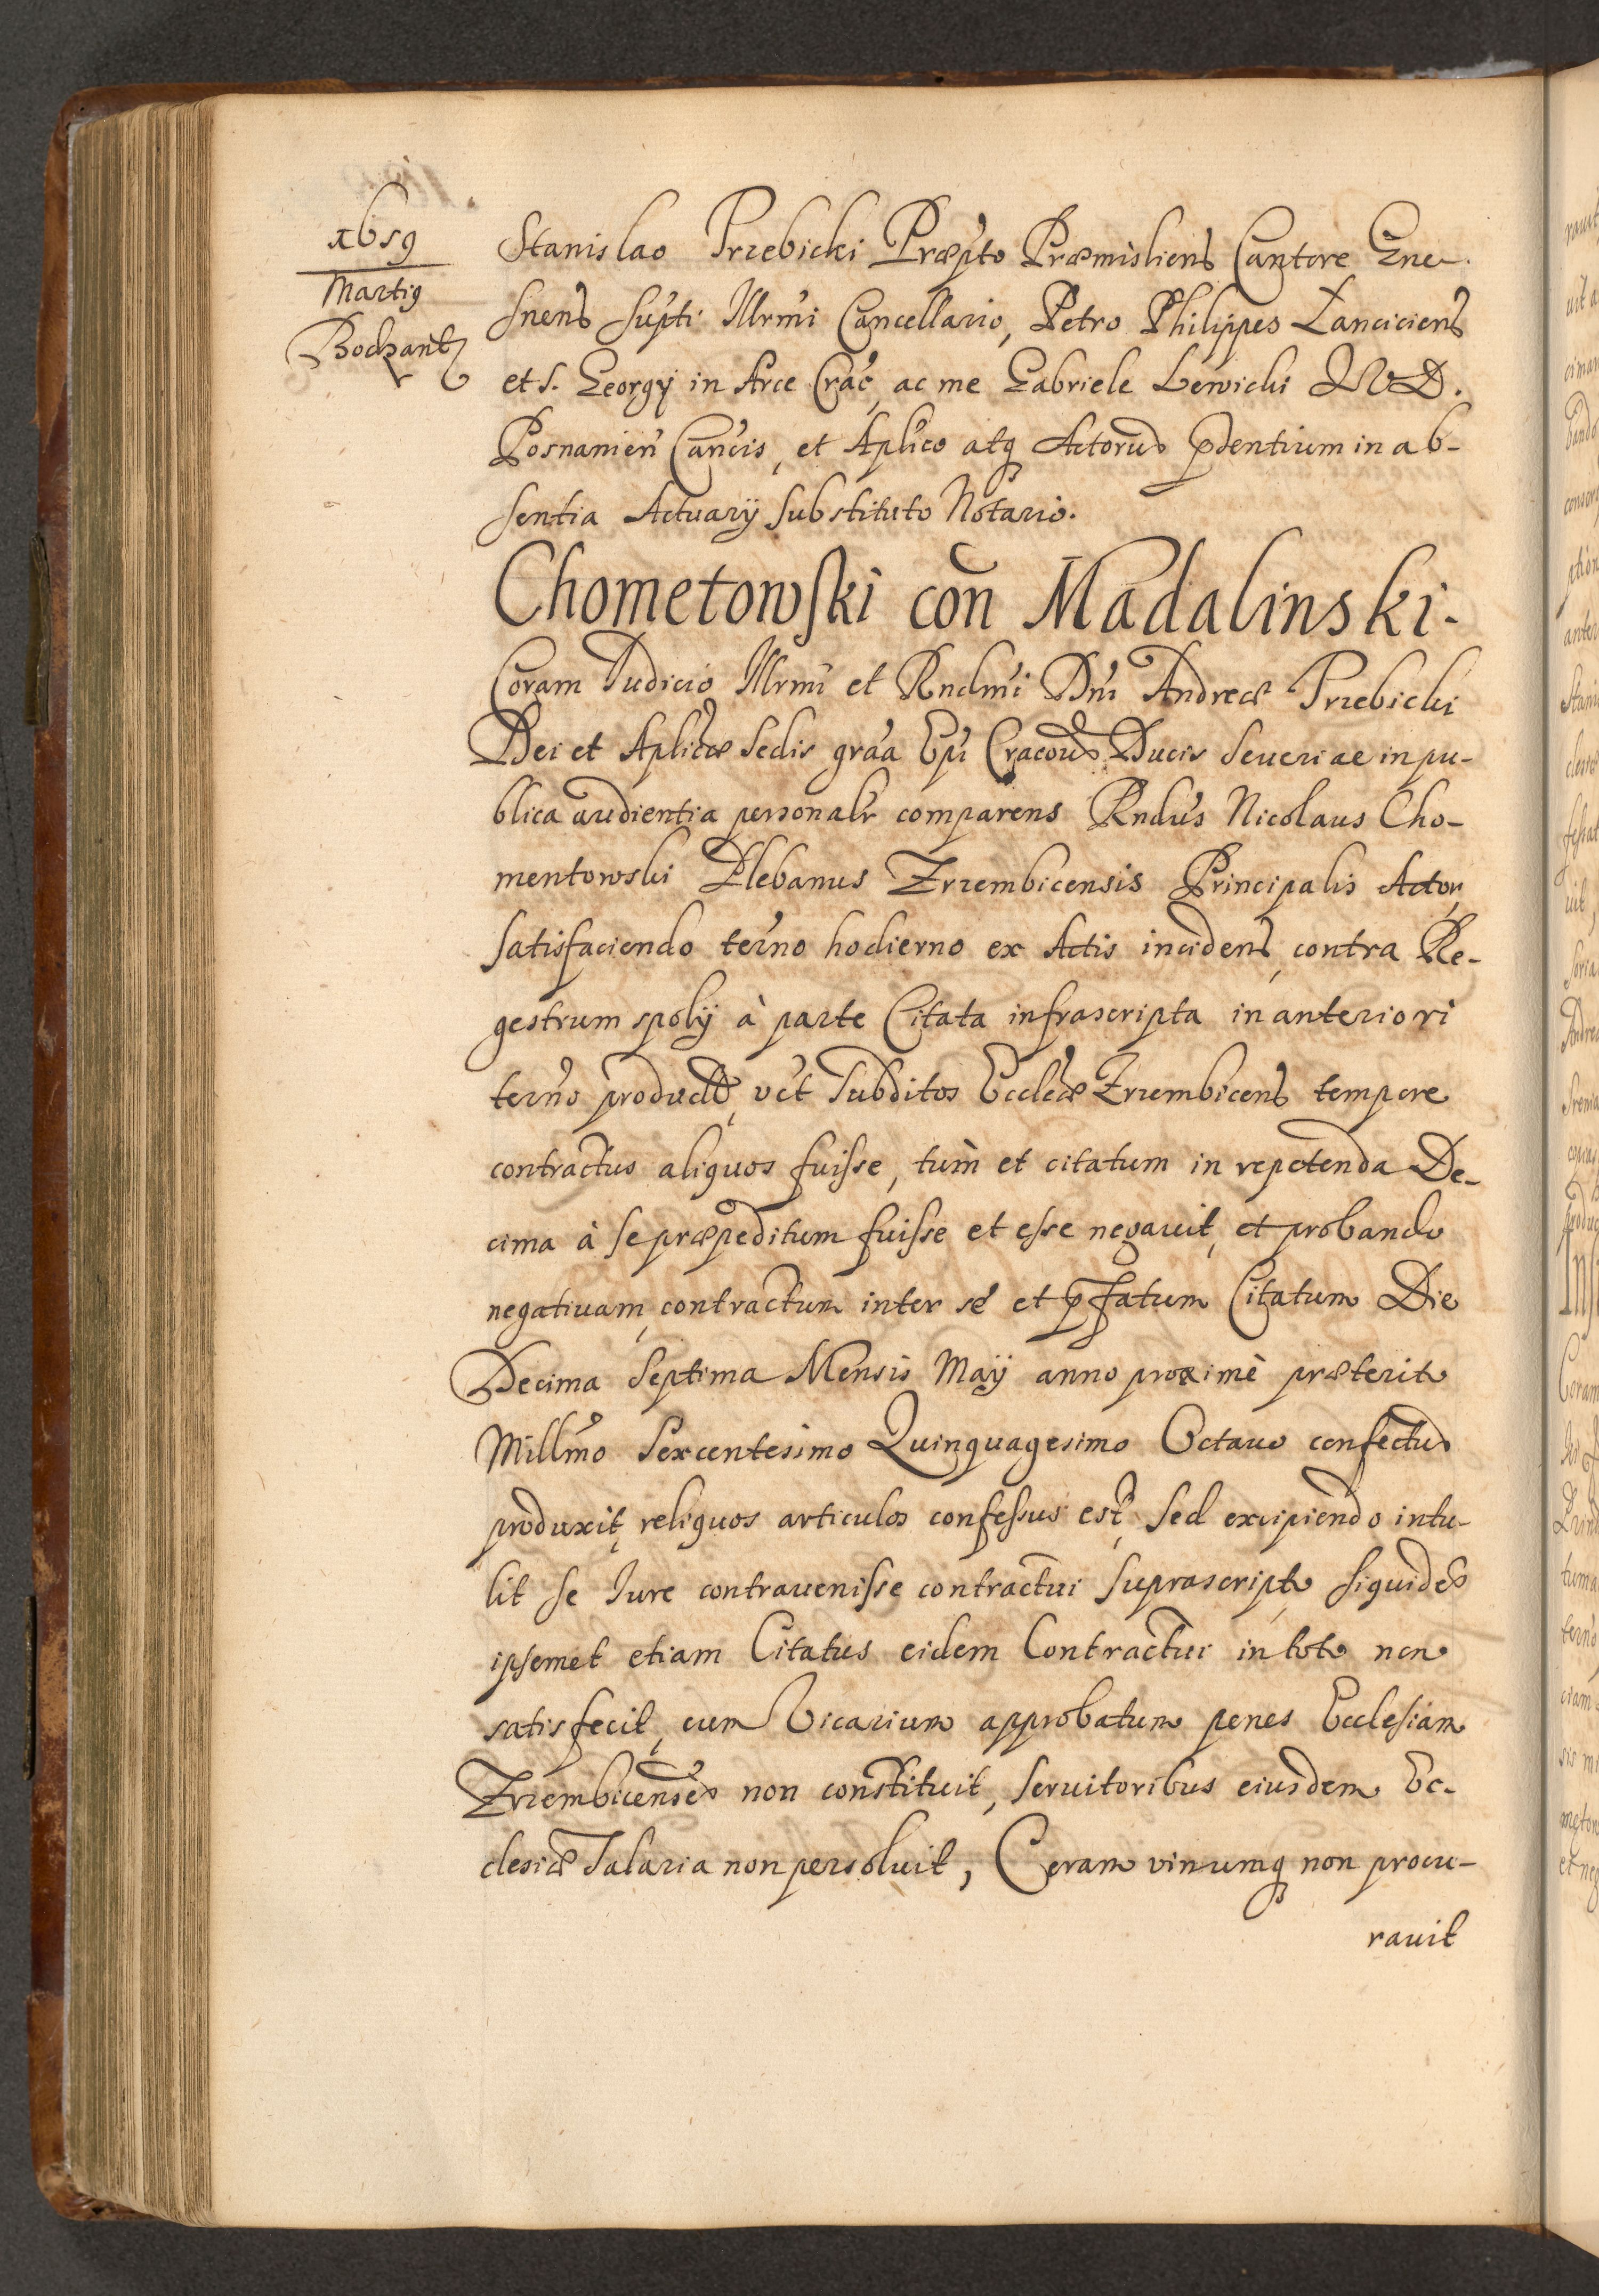 1659
Martiꝯ
Bodzant
Stanislao Trzebicki Præpto Præmisliens Cantore Gne-
snens supti Illrmi Cancellario, Petro Philippes Lanciciens
et S. Georgÿ in Arce Crac, ac me Gabriele Lewicki IVD.
Posnanien Cancis, et Aplico atq Actorum pdentium in ab-
sentia Actuarÿ substituto Notario.
Chometowski con Madalinski.
Coram Judicio Illrmi et Rndmi Dni Andreæ Trzebicki
Dei et Aplicæ Sedis graa Epi Cracoun Ducis Seueriae in pu-
blica audientia personalr comparens Rndus Nicolaus Cho-
mentowski Plebanus Zrzembicensis Principalis Actor,
satisfaciendo terno hodierno ex Actis incidens, contra Re-
gestrum spolÿ à parte Citata infrascripta in anteriori
terno product, vct Subditos Eccleæ Zrzembicens tempore
contractus aliquos fuisse, tum et citatum in repetenda De-
cima à se præpeditum fuisse et esse negauit, et probando
negatiuam, contractum inter se et pfatum Citatum Die
Decima Septima Mensis Maÿ anno proximè præterito
Millmo Sexcentesimo Quinquagesimo Octauo confectum
produxit, reliquos articulos confessus est, sed excipiendo intu-
lit se Jure contrauenisse contractui suprascripto siquidem
ipsemet etiam Citatus eidem Contractui in toto non
satisfecit, cum Vicarium approbatum penes Ecclesiam
Zrzembicensem non constituit, seruitoribus eiusdem Ec-
clesiæ Salaria non persoluit, Ceram vinumq non procu-
rauit